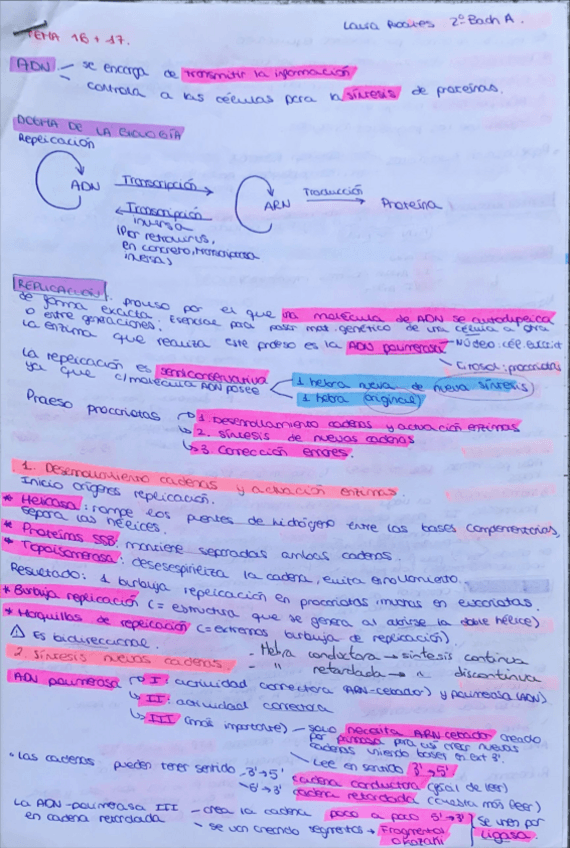 Laura Rocites 2º Bach A.
TEMA 16 + 17.
ADN — se encarga de transmitir la información
controla a las células para la síntesis de proteínas.
DOGMA DE LA BIOLOGÍA
Replicación
ADN Transcripción ARN Traducción Proteína
Transcripción
inversa
(Por retrovirus,
en concreto, transcriptasa
inversa)
REPLICACIÓN: proceso por el que una molécula de ADN se autoduplica
de forma exacta. Esencial para pasar mat. genético de una célula a otra
o entre generaciones.
La enzima que realiza este proceso es la ADN polimerasa — Núcleo: cél. eucariot
Citosol: procariotas
La replicación es semiconservativa
ya que c/molécula ADN posee 1 hebra nueva de nueva síntesis
1 hebra original
Proceso procariotas 1. Desenrollamiento cadenas y actuación enzimas
2. Síntesis de nuevas cadenas
3. Corrección errores.
1. Desenrollamiento cadenas y actuación enzimas.
Inicio orígenes replicación.
* Helicasa: rompe los puentes de hidrógeno entre las bases complementarias,
separa las hélices.
* Proteínas SSB: mantiene separadas ambas cadenas.
* Topoisomerasa: desespiraliza la cadena, evita enrollamiento.
Resultado: 1 burbuja replicación en procariotas, muchas en eucariotas.
* Burbuja replicación (= estructura que se genera al abrirse la doble hélice)
* Horquillas de replicación (= extremos burbuja de replicación)
⚠ Es bidireccional.
2. Síntesis nuevas cadenas - Hebra conductora → síntesis continua
- " retardada → " discontinua
ADN polimerasa I: actividad correctora (ARN-cebador) y polimerasa (ADN)
II: actividad correctora
III (más importante) — solo necesita ARN cebador creado
por primasa para así crear nuevas
cadenas uniendo bases en ext 3'.
Lee en sentido 3' → 5'
· Las cadenas pueden tener sentido - 3' → 5' cadena conductora (fácil de leer)
5' → 3' cadena retardada (cuesta más leer)
La ADN-polimerasa III — crea la cadena poco a poco 5' → 3' Se unen por
en cadena retardada - se van creando segmentos → Fragmentos ligasa.
Okazaki